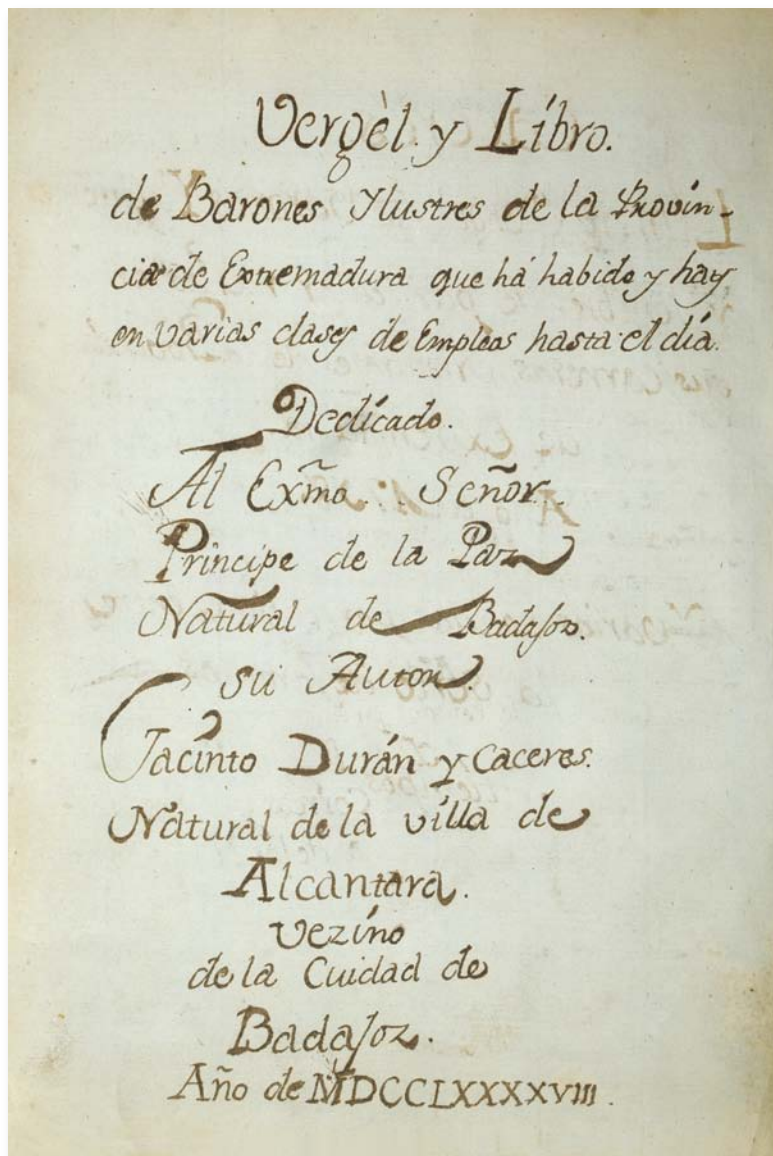 Vergèl. y Libro.
de Barones Ylustres de la Provin-
cia de Extremadura que há habido y hay
en varias clases de Empleos hasta el día.
Dedicado.
Al Exm̃o. Señor.
Principe de la Paz
Natural de Badajoz.
su Autor.
Jacinto Durán y Caceres.
Natural de la villa de
Alcantara.
vezino
de la Cuidad de
Badajoz.
Año de MDCCLXXXXVIII.